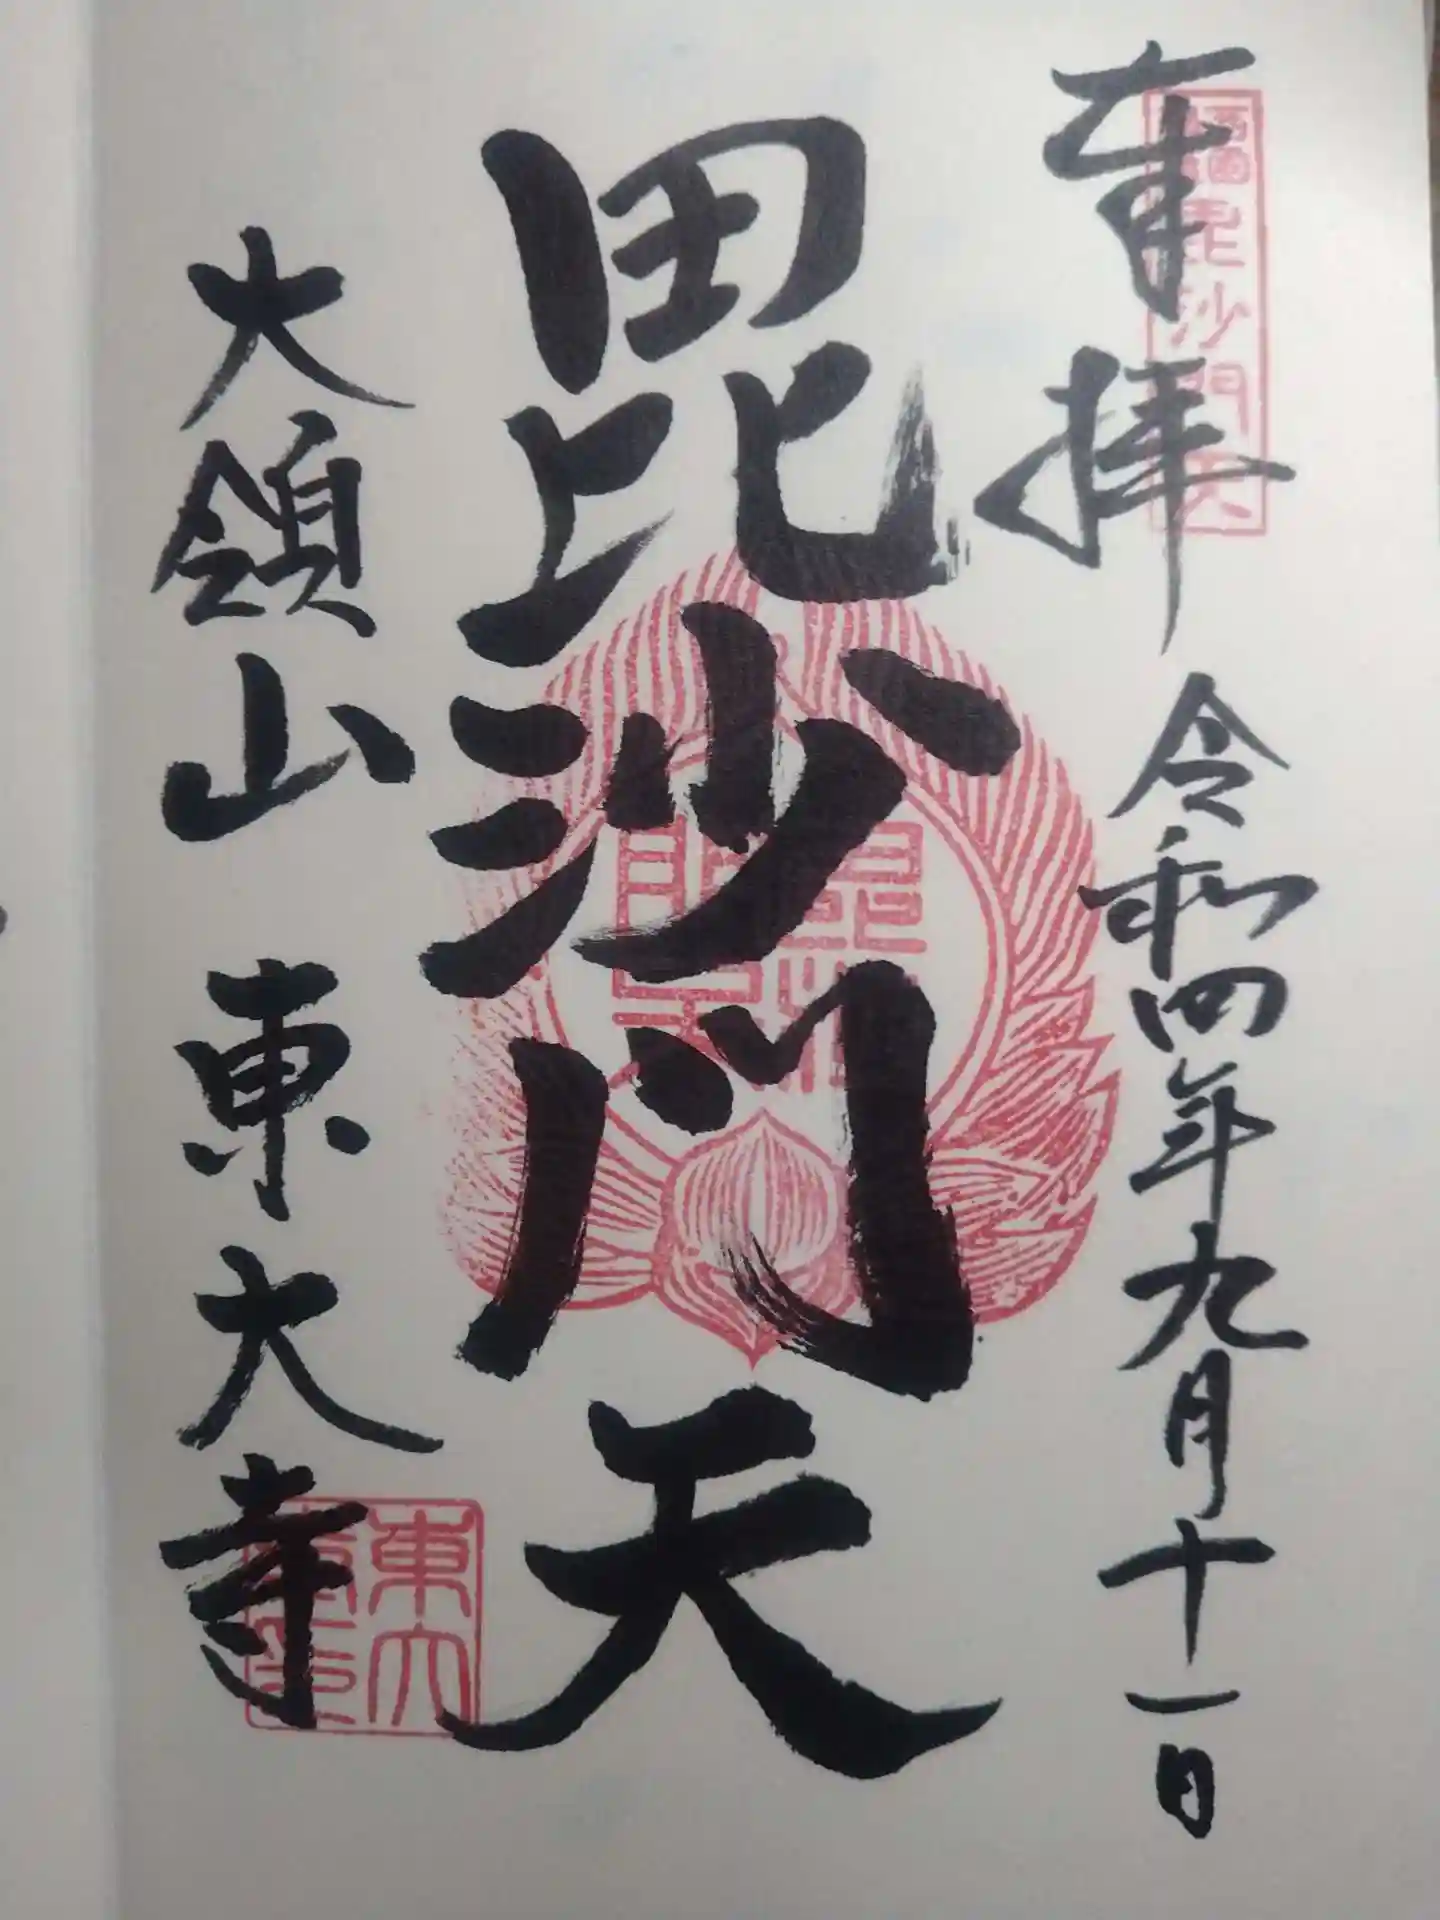 奉拝 令和四年九月十一日
毘沙門天
大領山 東大寺
毘沙門天
東大